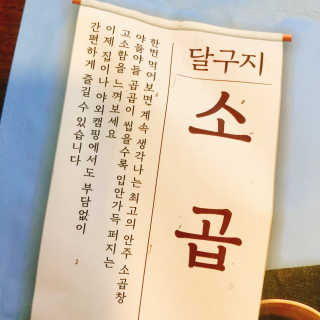 달구지
소곱
한번 먹어보면 계속 생각나는 최고의 안주 소곱창
야들야들 곱곱이 씹을수록 입안가득 퍼지는
고소함을 느껴보세요
이제 집이나 야외캠핑에서도 부담없이
간편하게 즐길 수 있습니다